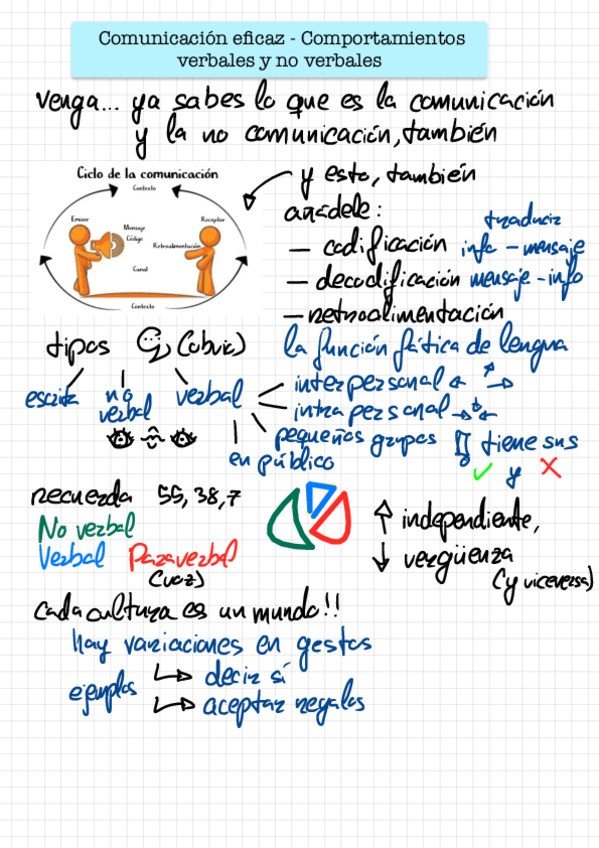 Comunicación eficaz - Comportamientos
verbales y no verbales
venga... ya sabes lo que es la comunicación
y la no comunicación, también
Ciclo de la comunicación
Contexto
Emisor
Receptor
Mensaje
Código
Retroalimentación
Canal
Contexto
y esto, también
añádele:
traducir
— codificación info - mensaje
— decodificación mensaje - info
— retroalimentación
la función fática de lengua
tipos (obvio)
escrita
no verbal
verbal
interpersonal
intrapersonal
pequeños grupos
en público
tiene sus
✓ y ✗
recuerda 55, 38, 7
No verbal
Verbal Paraverbal
(voz)
↑ independiente,
↓ vergüenza
(y viceversa)
cada cultura es un mundo!!
hay variaciones en gestos
ejemplos
↳ decir sí
↳ aceptar regalos